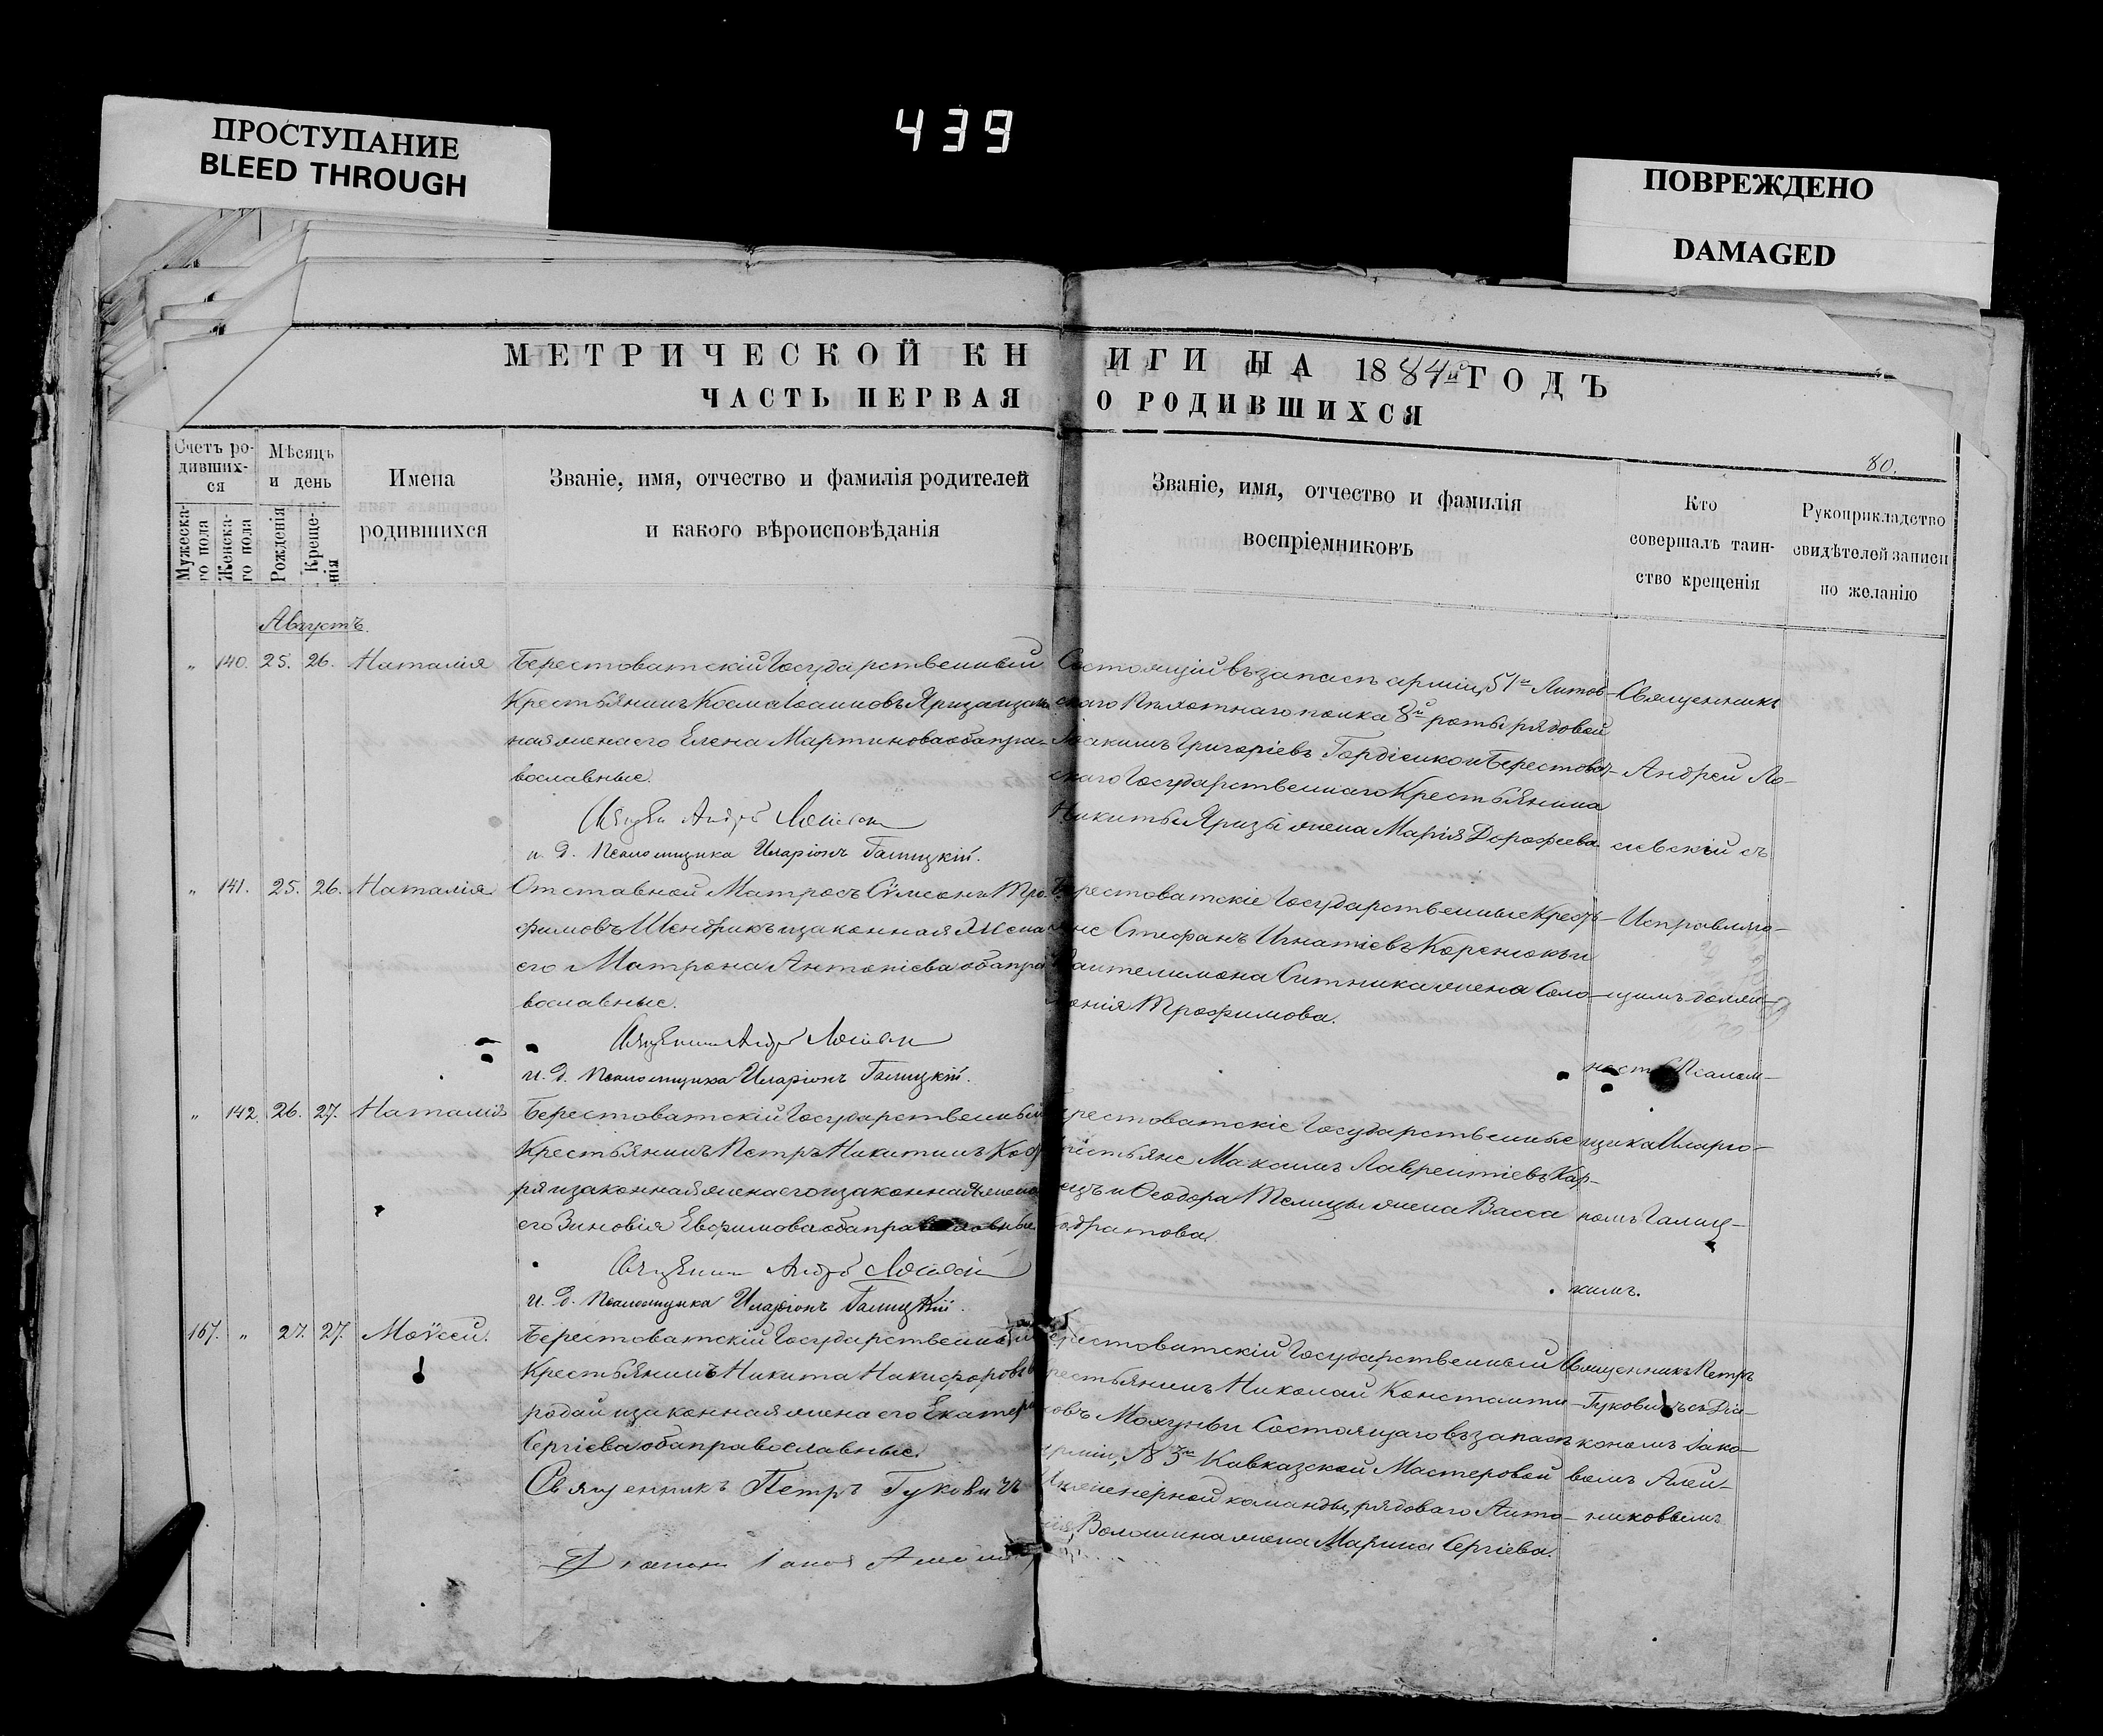 ПРОСТУПАНИЕ
BLEED THROUGH
439
ПОВРЕЖДЕНО
DAMAGED
МЕТРИЧЕСКОЙ КНИГИ НА 1884й ГОДЪ
ЧАСТЬ ПЕРВАЯ О РОДИВШИХСЯ
80.
Счетъ ро-
дивших-
ся
Мужеска-
го пола
Женска-
го пола
Мѣсяцъ
и день
Рожденія
Креще-
нія
Имена
родившихся
Званіе, имя, отчество и фамилія родителей
и какого вѣроисповѣданія
Званіе, имя, отчество и фамилія
воспріемниковъ
Кто
совершалъ таин-
ство крещенія
Рукоприкладство
свидѣтелей записи
по желанію
Августъ.
" 140. 25. 26. Наталія
Берестоватскій Государственный
Крестьянинъ Косма Іоанновъ Яриза и закон
ная жена его Елена Мартинова оба пра-
вославные.
и. д. Псаломщика Иларіонъ Галицкій.
Состоящій въ запасѣ арміи, 51го Литов-
скаго Пѣхотнаго полка 8й роты рядовой
Іоакимъ Григоріевъ Гордіенко и Берестоват-
скаго Государственнаго Крестьянина
Никиты Яризы жена Марія Дорофеева
Священникъ
Андрей Ло-
сіевскій съ
" 141. 25. 26. Наталія
Отставной Матросъ Сѵмеонъ Тро-
фимовъ Шендрикъ и законная жена
его Матрона Антоніева оба пра
вославные.
и. д. Псаломщика Иларіонъ Галицкій.
Берестоватскіе Государственные Кресть-
яне Стефанъ Игнатіевъ Коренюкъ и
Пантелимона Ситника жена Соло-
монія Трофимова.
Исправляю-
щимъ долж-
ность Псалом-
" 142. 26. 27. Наталія
Берестоватскій Государственный
Крестьянинъ Петръ Никитинъ
ря и законная жена его и законная жена
его Зиновія Евфимова оба православные
и. д. Псаломщика Иларіонъ Галицкій.
рестоватскіе Государственные
рестьяне Максимъ Лаврентіевъ Кар-
и Ѳеодора Телицы жена Васса
дратова.
щика Иларіо-
номъ Галиц-
кимъ.
167. " 27. 27. Моѵсей.
Берестоватскій Государственный
Крестьянинъ Никита Никифоровъ
родай и законная жена его Екатери
Сергіева оба православные.
Священникъ Петръ Гуковичъ
ерестоватскій Государственный
рестьянинъ Николай Константи-
новъ Мохунь и Состоящаго въ запасѣ
арміи, въ 3й Кавказской Мастеровой
Инженерной команды, рядоваго Анто-
нія Волошина жена Марина Сергіева.
Священникъ Петръ
Гуковичъ съ Діа-
кономъ Іако-
вомъ Алей-
никовымъ